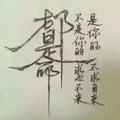 是你的 不求自来
不是你的 求也不来
都是命